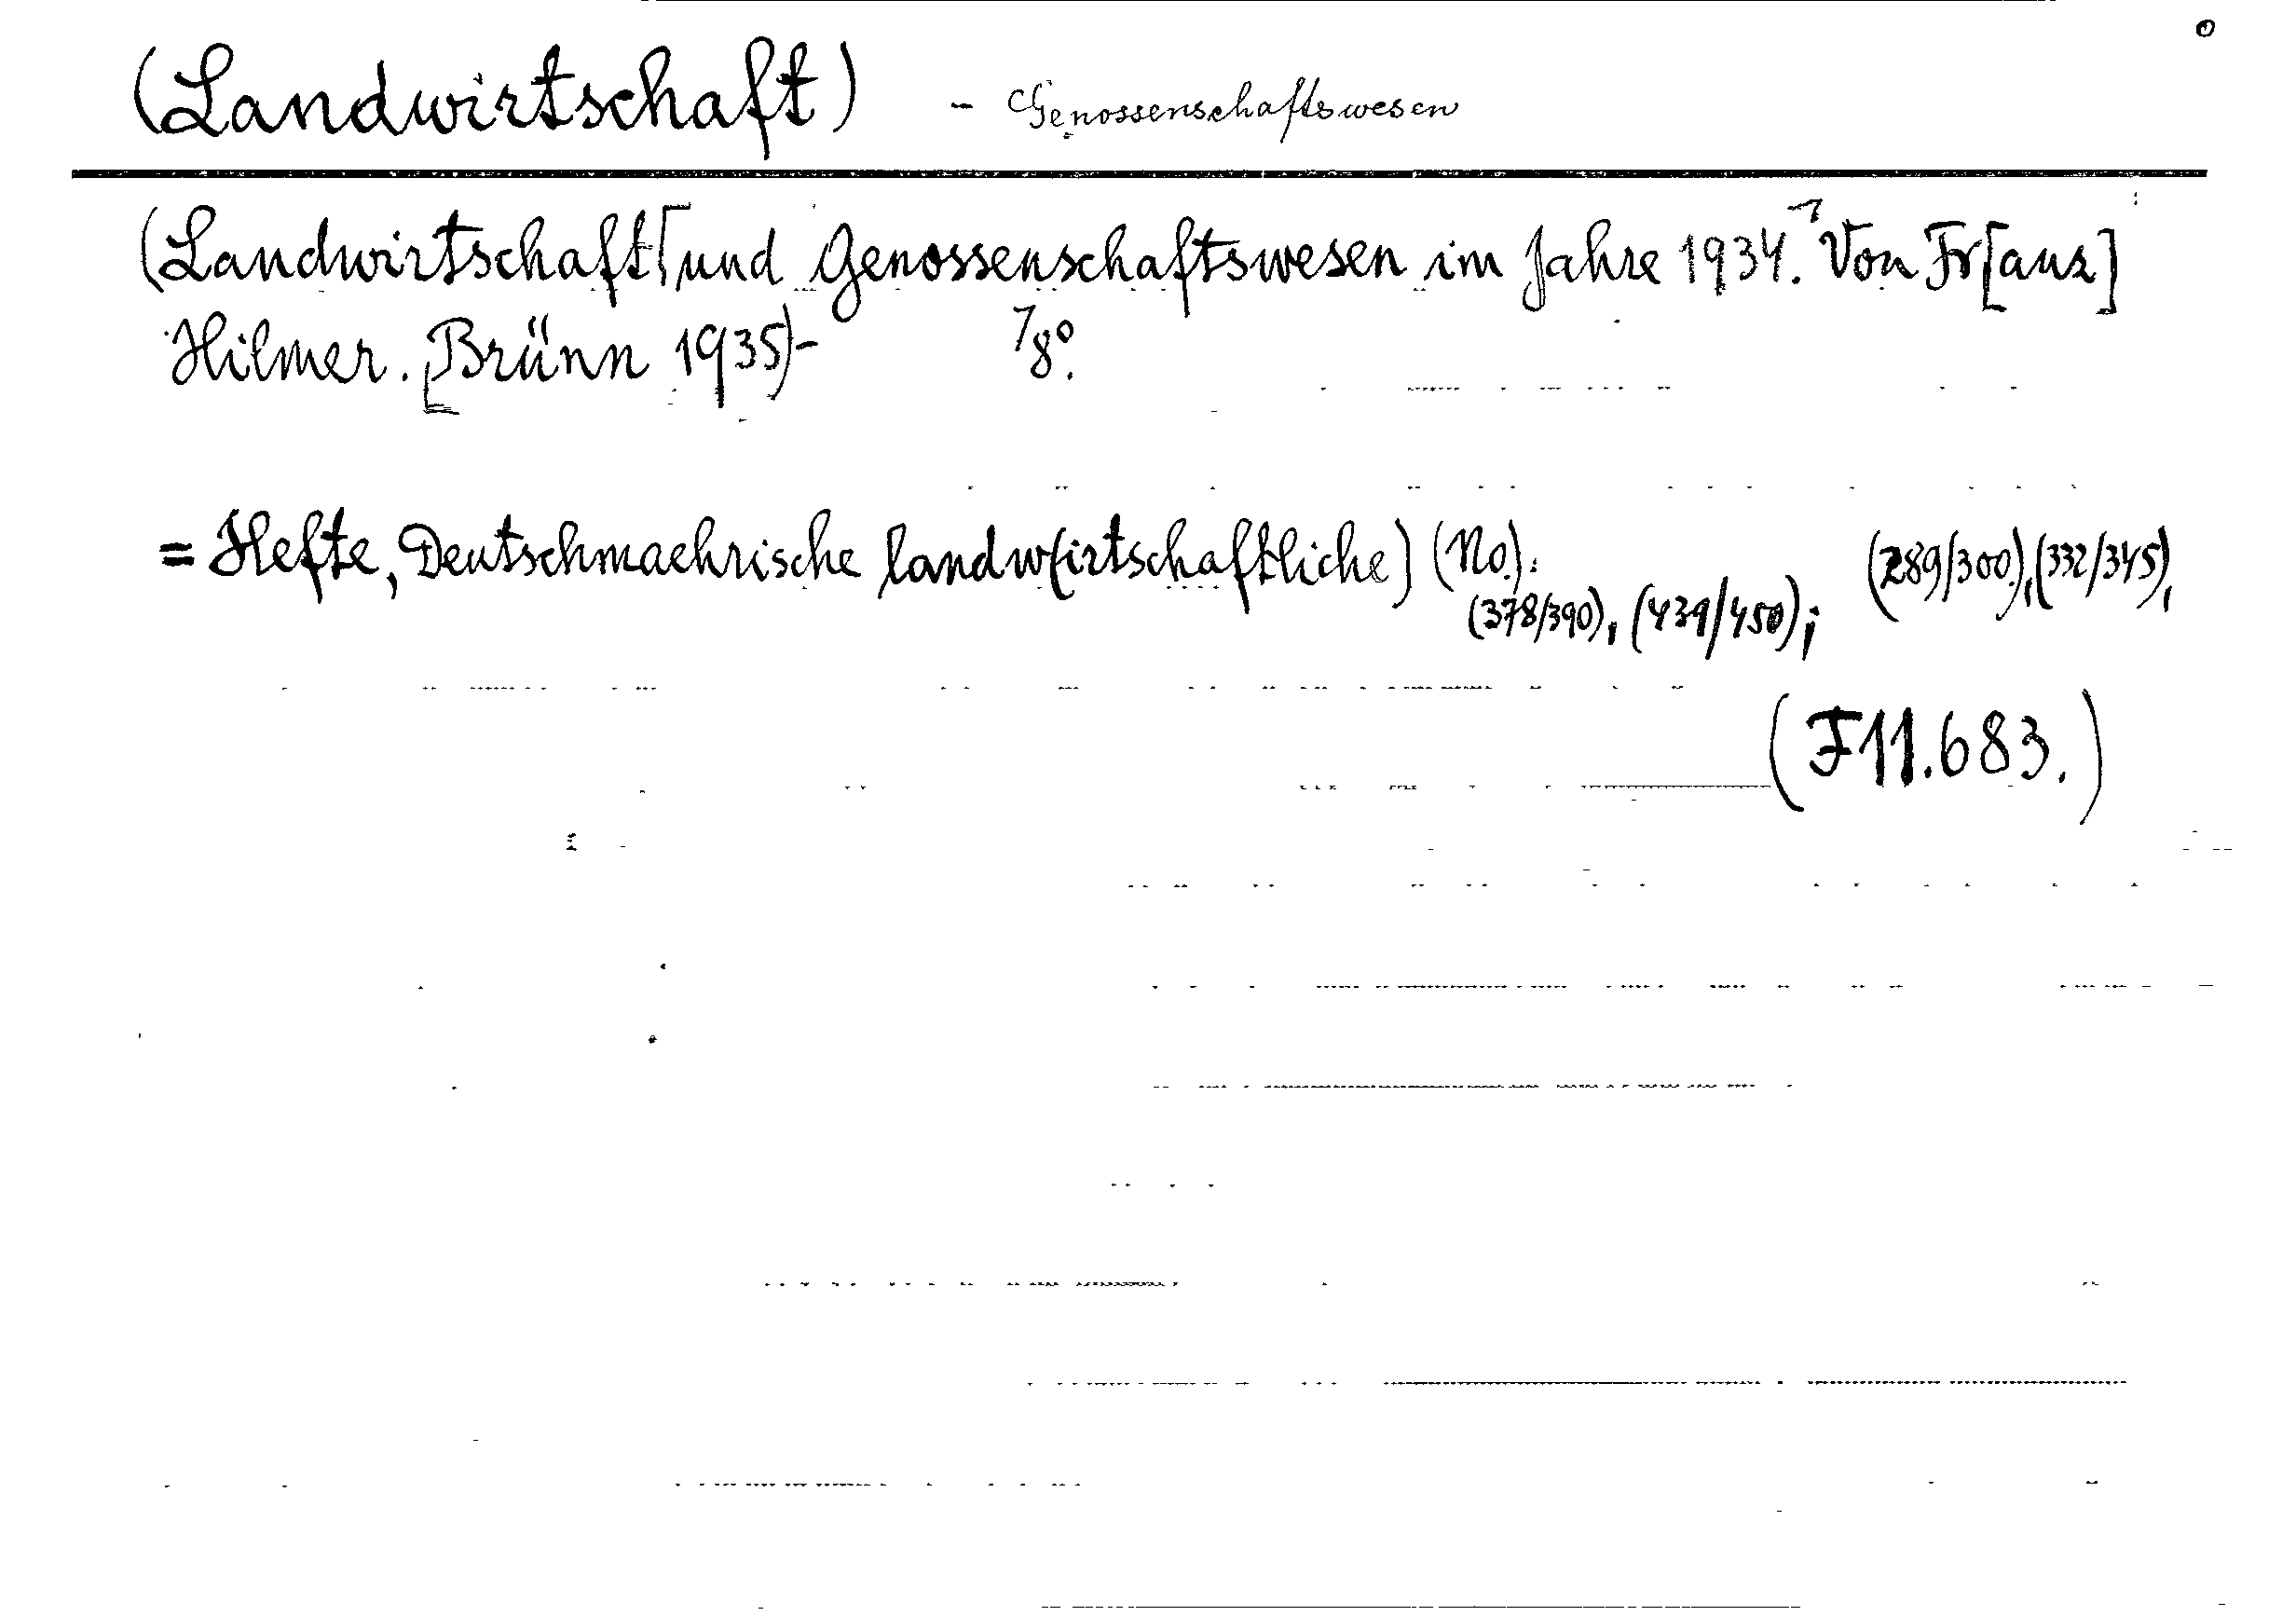 (Landwirtschaft) - Genossenschaftswesen
(Landwirtschaft[und Genossenschaftswesen im Jahre 1934.⌝ Von Fr[anz]
Hilmer. [Brünn 1935)- 8°.
= Hefte, Deutschmaehrische landw[irtschaftliche] (No). (289/300),(332/345),
(378/390), (439/450);
(F11.683.)